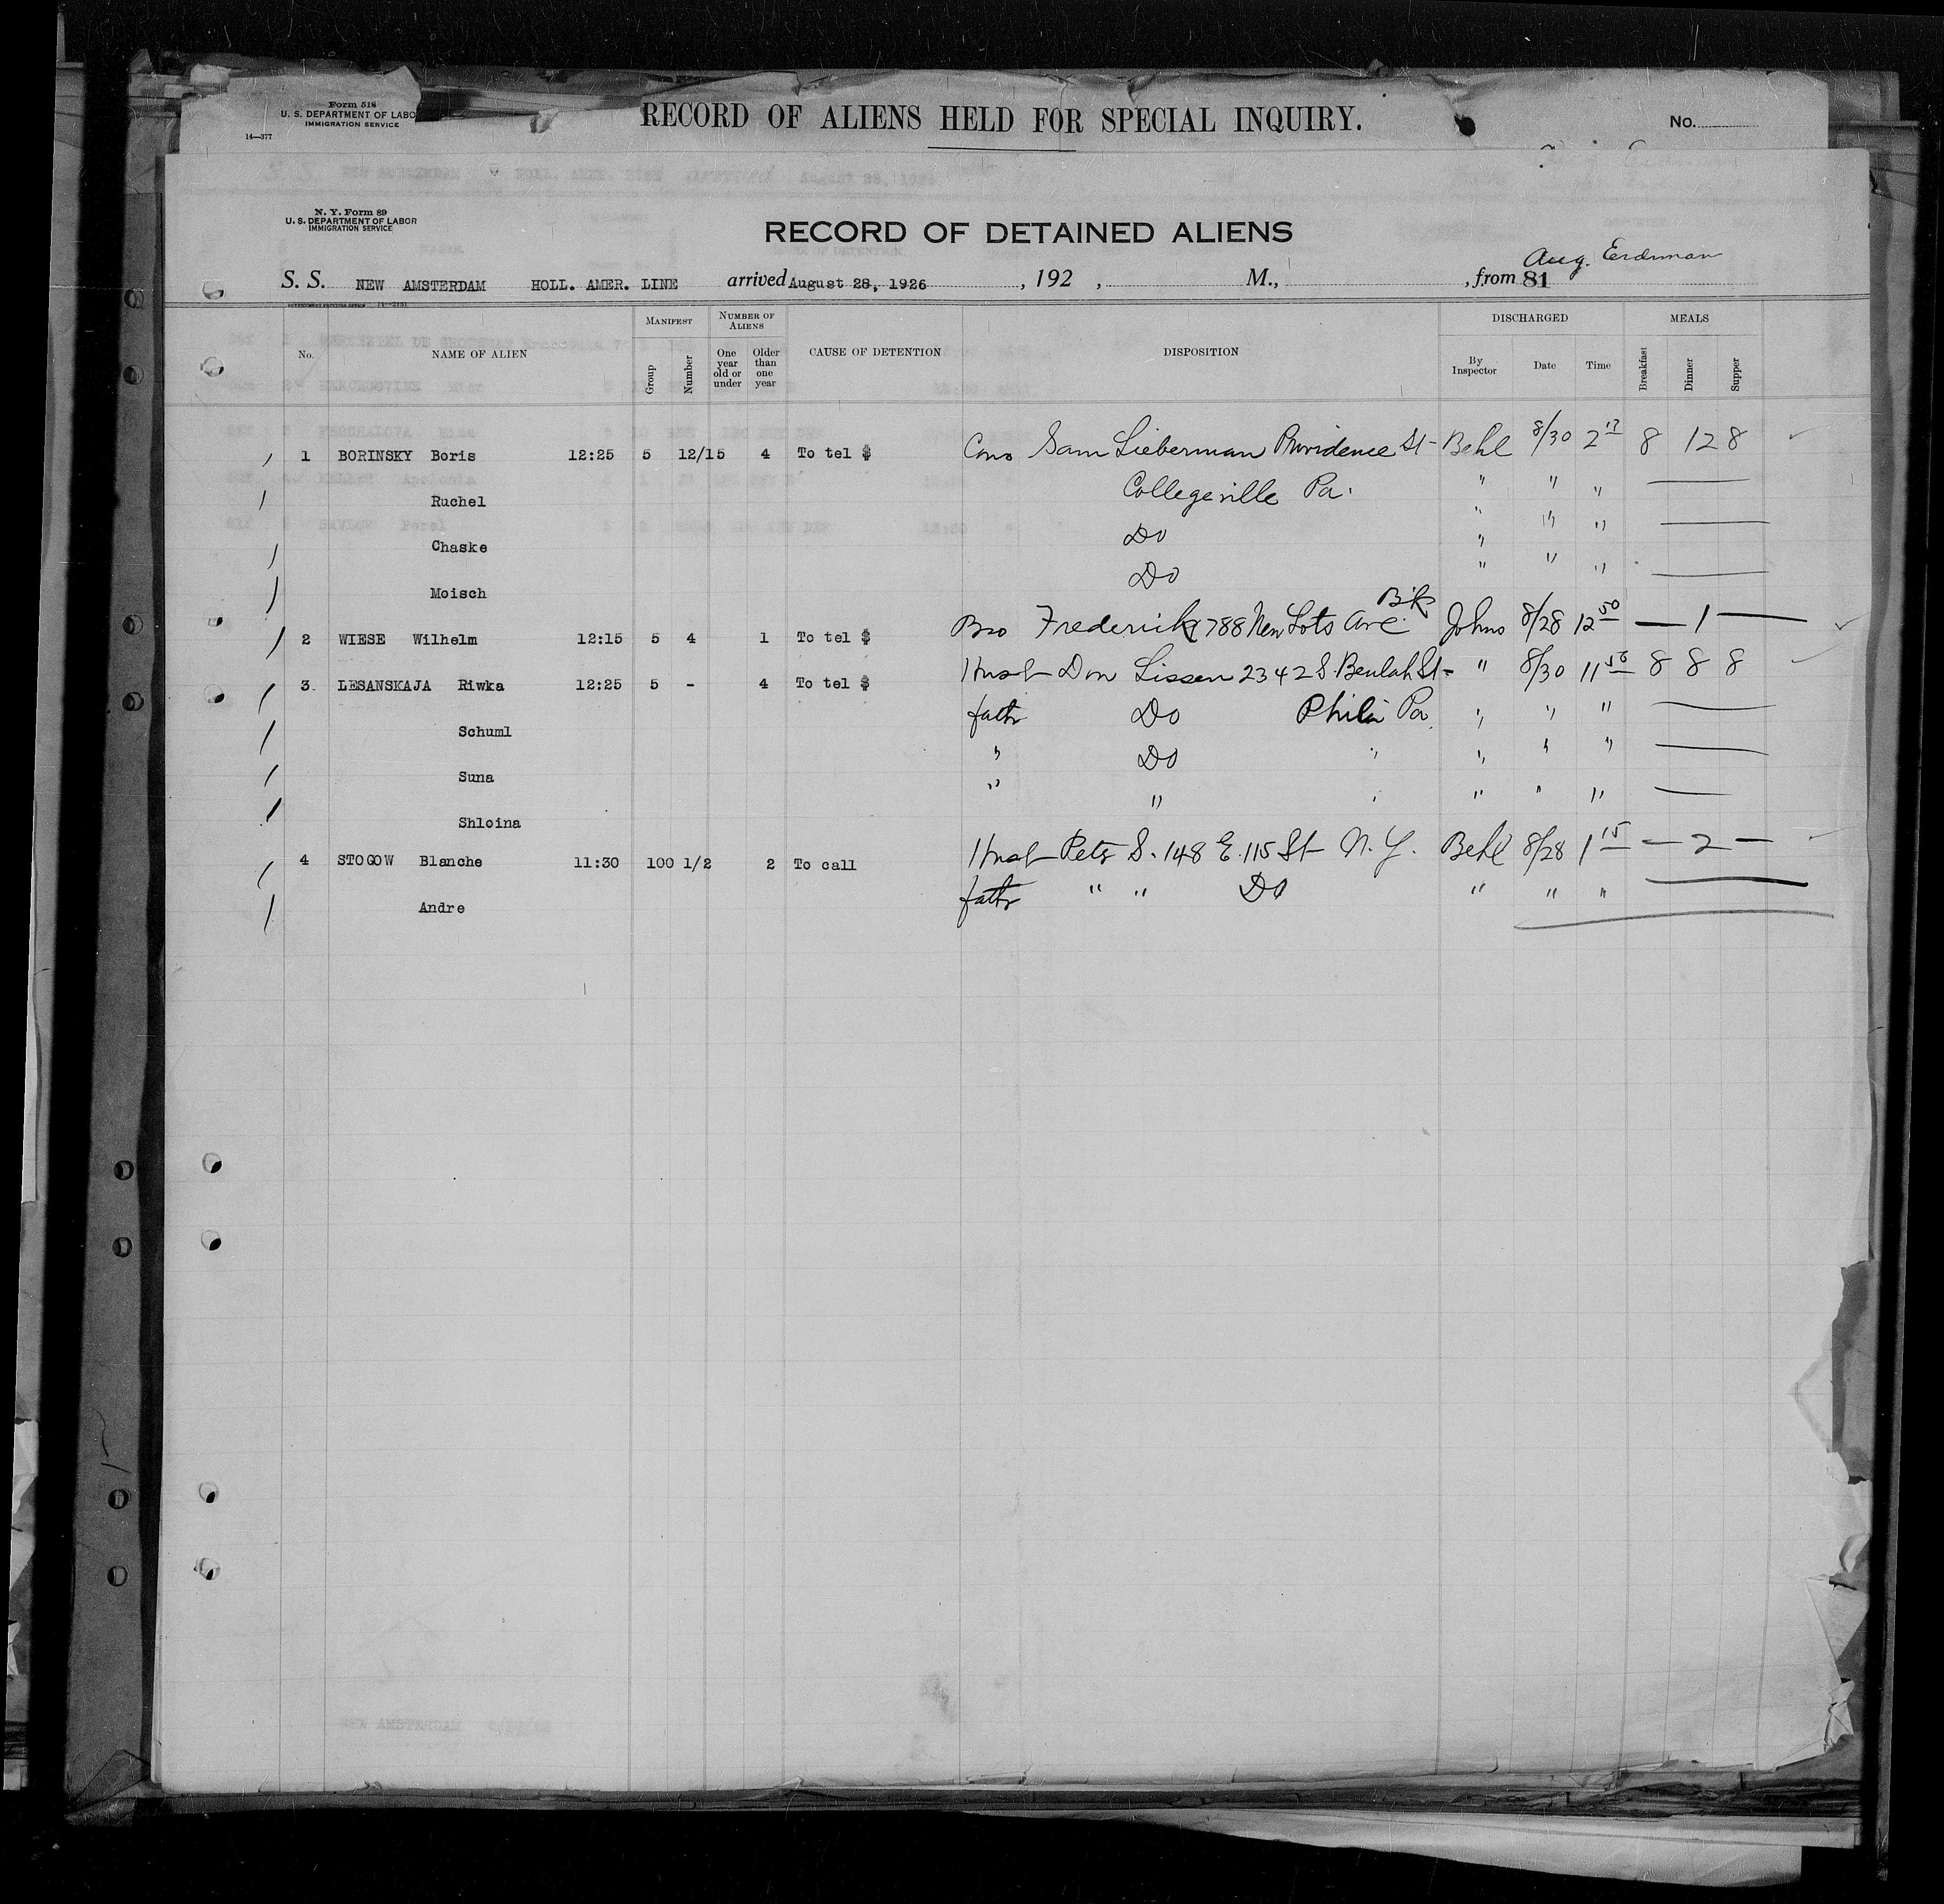 Form 518
U. S. DEPARTMENT OF LABO
IMMIGRATION SERVICE
14—377
RECORD OF ALIENS HELD FOR SPECIAL INQUIRY.
No.
N. Y. Form 89
U. S. DEPARTMENT OF LABOR
IMMIGRATION SERVICE
RECORD OF DETAINED ALIENS
Aug. Erdman
S. S. NEW AMSTERDAM HOLL. AMER. LINE arrived August 28, 1926, 192 , M., , from 81
No. NAME OF ALIEN MANIFEST Group Number NUMBER OF ALIENS One year old or under Older than one year CAUSE OF DETENTION DISPOSITION DISCHARGED By Inspector Date Time MEALS Breakfast Dinner Supper
1 BORINSKY Boris 12:25 5 12/15 4 To tel $ Sam Lieberman Providence St- Behl 8/30 2 17 8 12 8
Ruchel Collegeville Pa. " " "
Chaske Do " " "
Moisch Do " " "
2 WIESE Wilhelm 12:15 5 4 1 To tel $ Bro Frederick 788 New Lots Ave. Bk Johns 8/28 12 50 — 1 —
3 LESANSKAJA Riwka 12:25 5 - 4 To tel $ Husb Don Lissen 2342 S. Beulah St- " 8/30 11 50 8 8 8
Schuml fath Do Phila Pa. " " "
Suna " Do " " " "
Shloina " " " " " "
4 STOGOW Blanche 11:30 100 1/2 2 To call Husb Petr S. 148 E. 115 St N. Y. Behl 8/28 1 15 — 2 —
Andre fath " " Do " " "